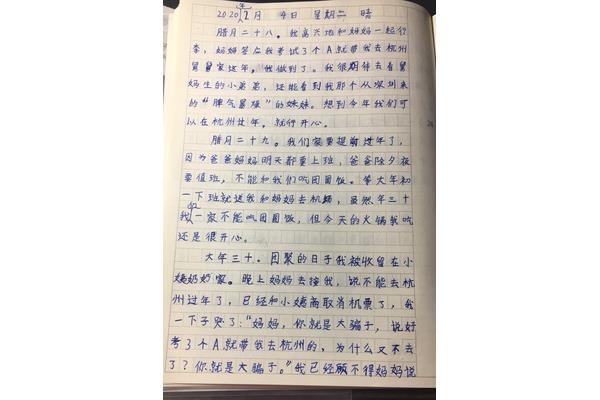 2020年2月4日 星期二 晴
腊月二十八。我高兴地和妈妈一起行
李,妈妈答应我考试3个A就带我去杭州
舅舅家过年,我做到了。我很期待去看舅
妈生的小弟弟,还能看到我那个从深圳来
的“脾气暴躁”的妹妹。想到今年我们可
以在杭州过年,就很开心。
腊月二十九。我们家要提前过年了,
因为爸爸妈妈明天都要上班,爸爸除夕夜
要值班,不能和我们吃团圆饭。等大年初
一下班就送我和妈妈去机场,虽然年三十
我们一家不能吃团圆饭,但今天的火锅我吃
还是很开心。
大年三十。团聚的日子我被收留在小
姨奶奶家。晚上妈妈去接我,说不能去杭
州过年了,已经和小姨商取消机票了,我
一下子哭了:“妈妈,你就是大骗子,说好
考3个A就带我去杭州的、为什么又不去
了?你就是大骗子。”我已经顾不得妈妈说